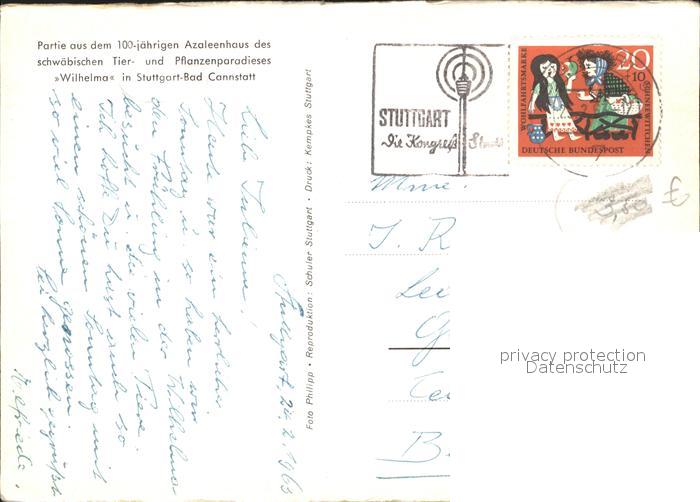 Partie aus dem 100-jährigen Azaleenhaus des
schwäbischen Tier- und Pflanzenparadieses
»Wilhelma« in Stuttgart-Bad Cannstatt
Stuttgart, 24.2.1963
Heute war ein herrlicher
Sonntag u. so haben wir
den Frühling in der Wilhelma
besucht u. die vielen Tiere.
Ich hoffe Du hast auch so
einen schönen Sonntag mit
so viel Sonne genossen.
Sei herzlich gegrüßt
Foto Philipp • Reproduktion: Schuler Stuttgart • Druck: Kempkes Stuttgart
STUTTGART
Die Kongreß-Stadt
WOHLFAHRTSMARKE
20
+10
SCHNEEWITTCHEN
DEUTSCHE BUNDESPOST
£
Mme.
J. R
B.
privacy protection
Datenschutz